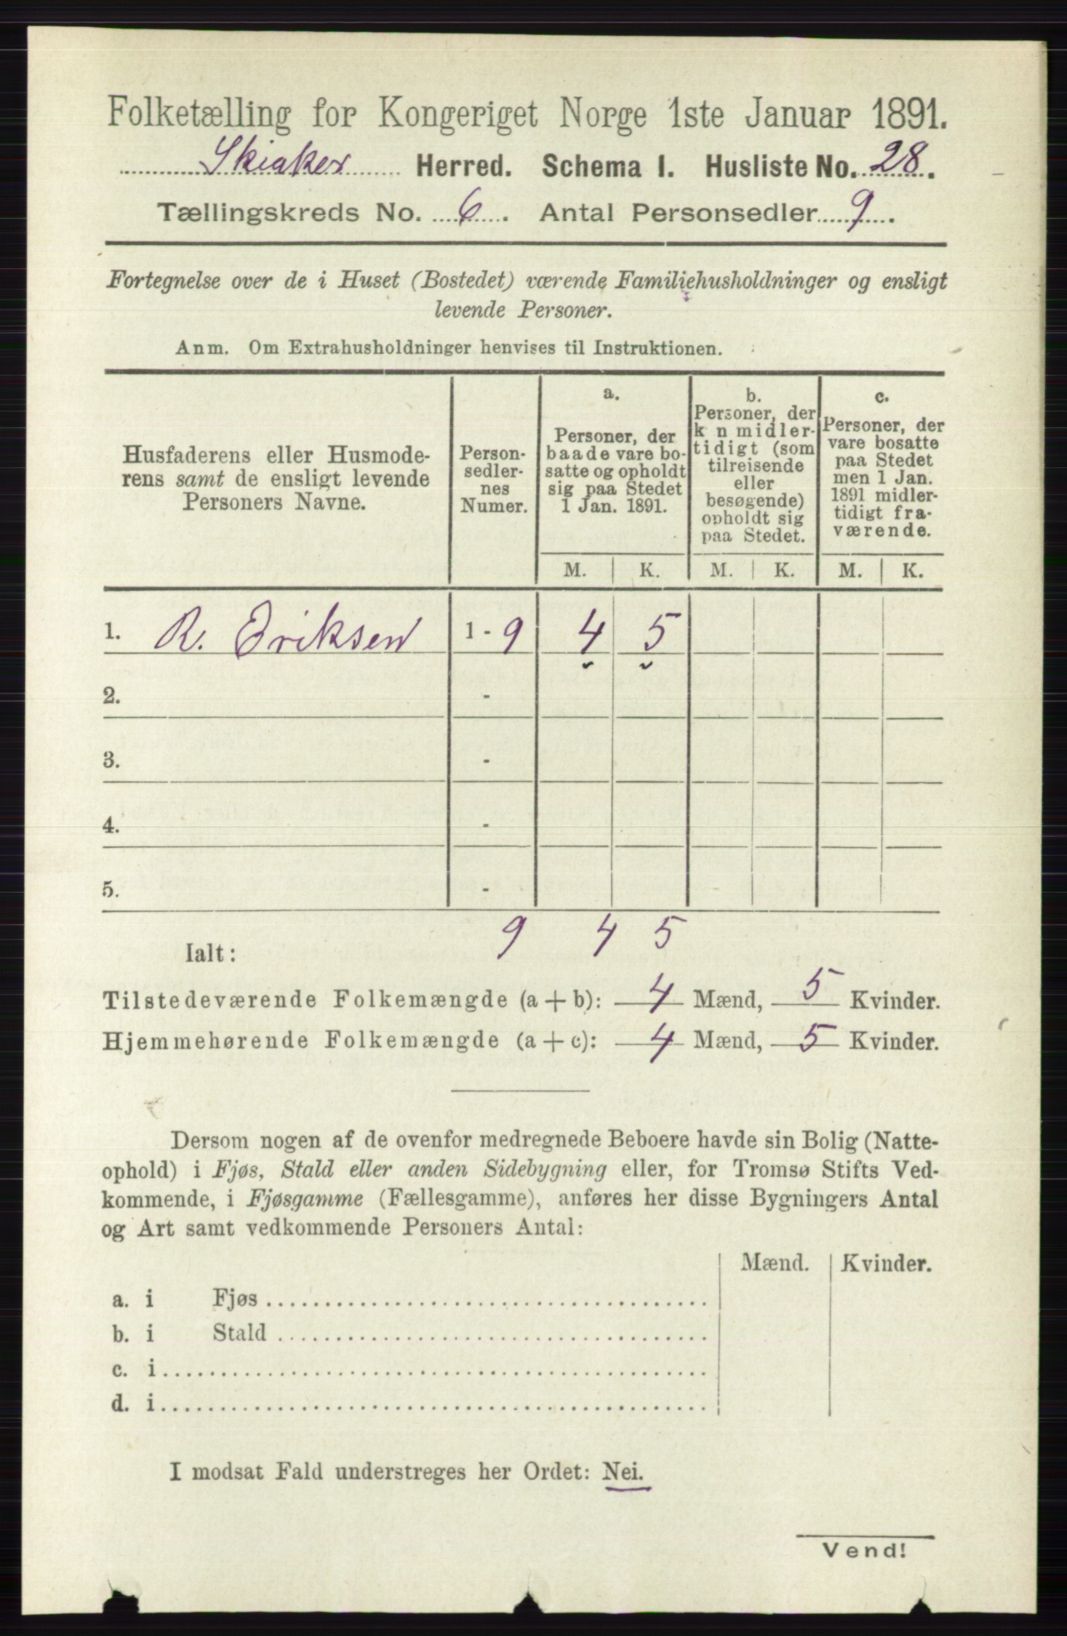 Folketælling for Kongeriget Norge 1ste Januar 1891.
Skiaker Herred. Schema I. Husliste No. 28.
Tællingskreds No. 6. Antal Personsedler 9.
Fortegnelse over de i Huset (Bostedet) værende Familiehusholdninger og ensligt
levende Personer.
Anm. Om Extrahusholdninger henvises til Instruktionen.
Husfaderens eller Husmode-
rens samt de ensligt levende
Personers Navne.
Person-
sedler-
nes
Numer.
a.
Personer, der
baade vare bo-
satte og opholdt
sig paa Stedet
1 Jan. 1891.
b.
Personer, der
k n midler-
tidigt (som
tilreisende
eller
besøgende)
opholdt sig
paa Stedet.
c.
Personer, der
vare bosatte
paa Stedet
men 1 Jan.
1891 midler-
tidigt fra-
værende.
M. K. M. K. M. K.
1. R. Eriksen 1 - 9 4 5
2. -
3. -
4. -
5. -
Ialt: 9 4 5
Tilstedeværende Folkemængde (a + b): 4 Mænd, 5 Kvinder.
Hjemmehørende Folkemængde (a + c): 4 Mænd, 5 Kvinder.
Dersom nogen af de ovenfor medregnede Beboere havde sin Bolig (Natte-
ophold) i Fjøs, Stald eller anden Sidebygning eller, for Tromsø Stifts Ved-
kommende, i Fjøsgamme (Fællesgamme), anføres her disse Bygningers Antal
og Art samt vedkommende Personers Antal:
Mænd. Kvinder.
a. i Fjøs
b. i Stald
c. i
d. i
I modsat Fald understreges her Ordet: Nei.
Vend!